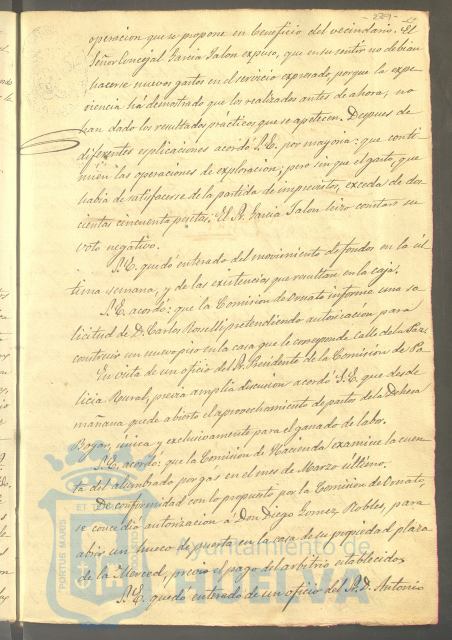 operacion que se propone en beneficio del vecindario. El
Señor Concejal Garcia Jalon expuso, que en su sentir no debian
hacerse nuevos gastos en el servicio expresado, porque la espe-
riencia há demostrado que los realizados antes de ahora, no
han dado los resultados prácticos que se apetecen. Despues de
diferentes esplicaciones acordó S.E. por mayoria: que conti-
nuen las operaciones de exploracion; pero sin que el gasto, que
habia de satisfacerse de la partida de imprevistos, exceda de dos-
cientas cincuenta pesetas. El Sr. Garcia Jalon hizo constar su
voto negativo.
S.E. quedó enterado del movimiento de fondos en la úl-
tima semana, y de las existencias que resultan en la caja.
S.E. acordó: que la Comision de Ornato informe una so-
licitud de D. Carlos Roselli, pretendiendo autorizacion para
construir un nuevo piso en la casa que le corresponde calle de la Paz.
En vista de un oficio del Sr. Presidente de la Comision de Po-
licia Rural, previa amplia discusion acordó S.E. que desde
mañana quede abierto el aprovechamiento de pastos de la Dehesa
Boyar, única y exclusivamente para el ganado de labor.
S.E. acordó: que la Comision de Hacienda examine la cuen-
ta del alumbrado por gas en el mes de Marzo último.
De conformidad con lo propuesto por la Comision de Ornato,
se concedió autorizacion á Don Diego Gomez Robles, para
abrir un hueco de puerta en la casa de su propiedad plaza
de la Merced, previo el pago del arbitrio establecido.
S.E. quedó enterado de un oficio del Sr. D. Antonio
PORTUS MARIS
ET
Ayuntamiento de
HUELVA